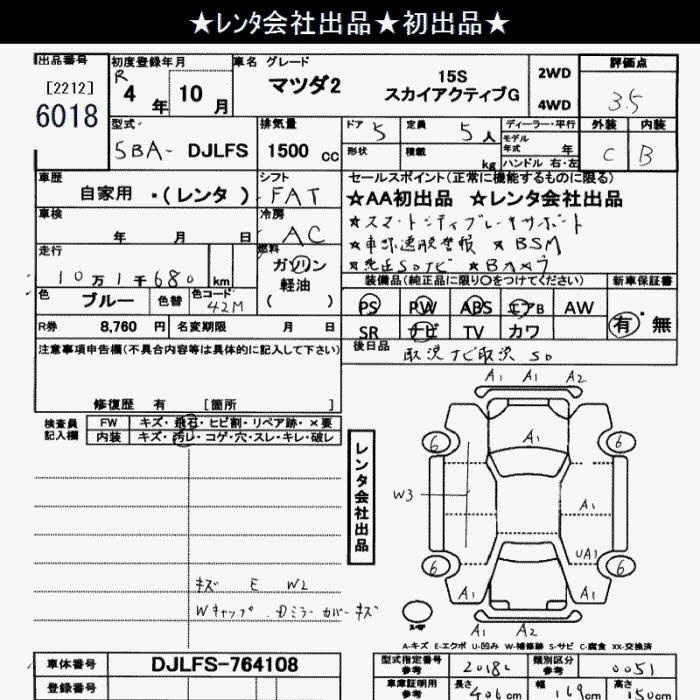 ★レンタ会社出品★初出品★
出品番号 初度登録年月 車名 グレード 評価点
[2212] R 4年 10月 マツダ2 15S 2WD 3.5
6018 スカイアクティブG 4WD
型式 排気量 ドア 5 定員 5人 ディーラー・平行 外装 内装
5BA- DJLFS 1500 cc 形状 積載 kg モデル年式 年 C B
ハンドル 右・左
車歴 シフト セールスポイント(正常に機能するものに限る)
自家用 ・(レンタ) FAT ★AA初出品 ★レンタ会社出品
車検 冷房 ★スマートシティブレーキサポート
年 月 日 AC ★車線逸脱警報 ★BSM
走行 燃料 ★純正SDナビ ★Bカメラ
10万1千680 km ガソリン 装備品(純正品に限り○をつけてください) 新車保証書
色 ブルー 色替 色コード 42M 軽油 PS PW ABS エアB AW 有・無
( )
R券 8,760 円 名変期限 月 日 SR ナビ TV カワ
注意事項申告欄(不具合内容等は具体的に記入して下さい) 後日品 取説 ナビ取説 SD
修復歴 有 [箇所 ]
検査員記入欄 FW キズ・飛石・ヒビ割・リペア跡・×要
内装 キズ・汚レ・コゲ・穴・スレ・キレ・破レ
レンタ会社出品
A1 A1 A2
6 A1 6
W3 A1
UA1
6 6
A1 A1
A1 A2
キズ E W2
Wキャップ・Dミラーカバーキズ
A-キズ E-エクボ U-凹み W-補修跡 S-サビ C-腐食 XX-交換済
車体番号 DJLFS-764108 型式指定番号 参考 20182 類別区分 参考 0051
登録番号 車庫証明用 参考 長さ 406cm 幅 169cm 高さ 150cm